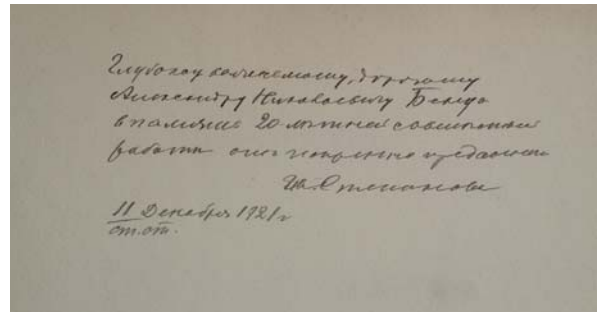 Глубокоуважаемому, дорогому
Александру Николаевичу Бенуа
в память 20 летней совместной
работы от искренно преданного
Ив. Степанова
11 Декабря 1921 г
ст. ст.